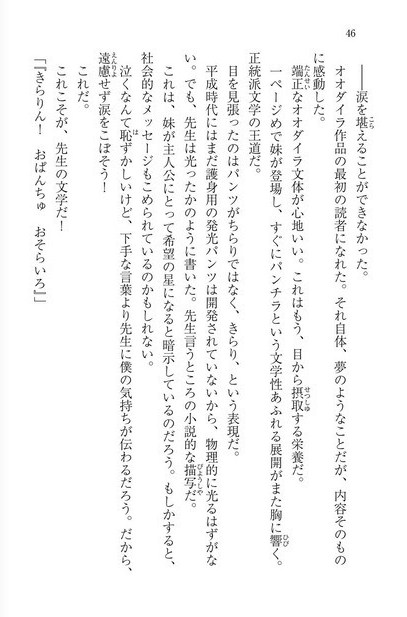 46
――涙を堪えることができなかった。
オオダイラ作品の最初の読者になれた。それ自体、夢のようなことだが、内容そのもの
に感動した。
端正なオオダイラ文体が心地いい。これはもう、目から摂取する栄養だ。
一ページめで妹が登場し、すぐにパンチラという文学性あふれる展開がまた胸に響く。
正統派文学の王道だ。
目を見張ったのはパンツがちらりではなく、きらり、という表現だ。
平成時代にはまだ護身用の発光パンツは開発されていないから、物理的に光るはずがな
い。でも、先生は光ったかのように書いた。先生言うところの小説的な描写だ。
これは、妹が主人公にとって希望の星になると暗示しているのだろう。もしかすると、
社会的なメッセージもこめられているのかもしれない。
泣くなんて恥ずかしいけど、下手な言葉より先生に僕の気持ちが伝わるだろう。だから、
遠慮せず涙をこぼそう！
これだ。
これこそが、先生の文学だ！
「『きらりん！　おぱんちゅ　おそらいろ』」